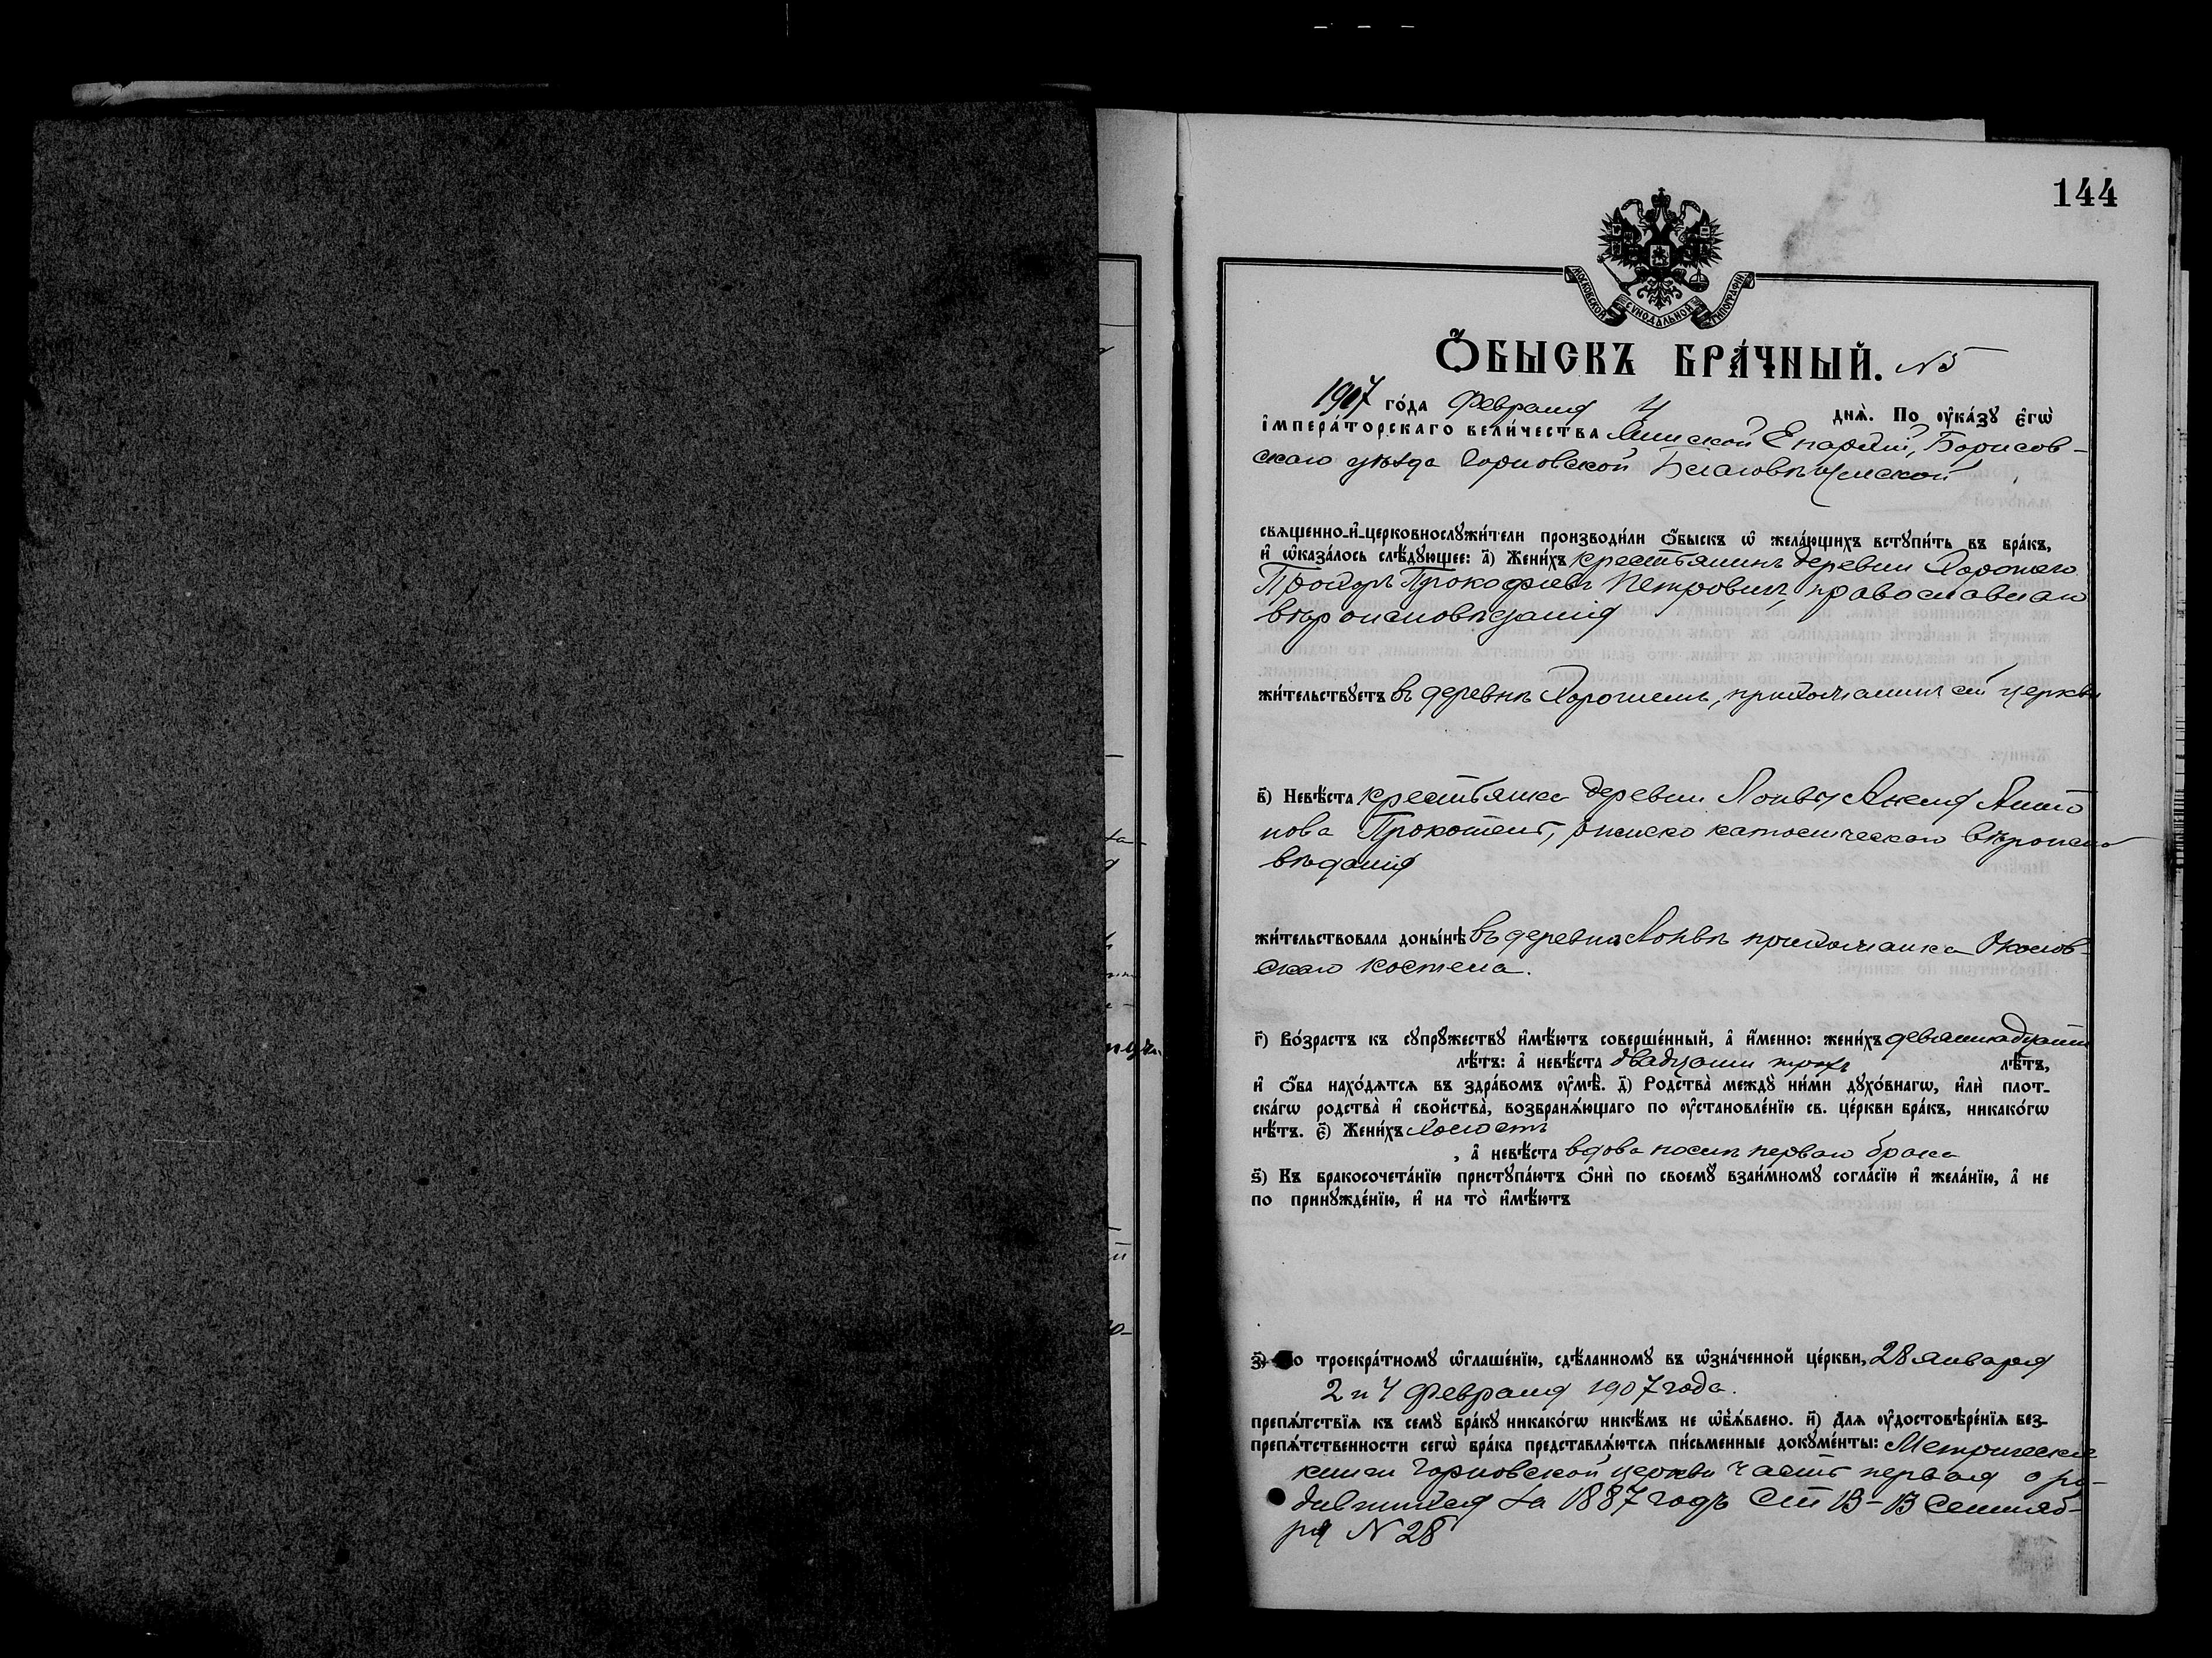 144
МОСКОВСКОЙ СѴНОДАЛЬНОЙ ТИПОГРАФІИ
Ѻ҆БЫСКЪ БРА́ЧНЫЙ. N 5
1907 го́да Февраля 4 днѧ̀. По ᲂу҆ка́зꙋ є҆гѡ̀
і҆мпера́торскаго вели́чества Минской Епархіи, Борисов-
скаго уѣзда Горновской Благовѣщенской
свѧщенно-и҆-церковнослꙋжи́тели производи́ли ѻ҆́быскъ ѡ҆ жела́ющихъ встꙋпи́ть въ бра́къ,
и҆ ѡ҆каза́лось слѣ́дꙋющее: а҃) Жени́хъ крестьянинъ деревни Хорошаго
Прохоръ Прокофіевъ Петровичъ, православнаго
вѣроисповѣданія
жи́тельствꙋетъ въ деревнѣ Хорошемъ, прихожанинъ сей церкви
в҃) Невѣ́ста крестьянка деревни Лонвы Анто
нова римско католическаго вѣроиспо
вѣданія
жи́тельствовала доны́нѣ въ деревнѣ Лонвѣ прихожанка Околов-
скаго костела.
г҃) Во́зрастъ къ сꙋпрꙋ́жествꙋ и҆мѣ́ютъ соверше́нный, а҆ и҆́менно: жени́хъ девятнадцати
лѣ́тъ: а҆ невѣ́ста двадцати трехъ лѣ́тъ,
и҆ ѻ҆́ба нахо́дѧтсѧ въ здра́вомъ ᲂу҆мѣ̀. д҃) Родства̀ междꙋ̀ ни́ми дꙋхо́внагѡ, и҆лѝ плот-
ска́гѡ родства̀ и҆ свойства̀, возбранѧ́ющаго по ᲂу҆становле́нїю св. це́ркви бра́къ, никако́гѡ
нѣ́тъ. є҃) Жени́хъ холостъ
, а҆ невѣ́ста вдова послѣ перваго брака
ѕ҃) Къ бракосочета́нїю пристꙋпа́ютъ ѻ҆нѝ по своемꙋ̀ взаи́мномꙋ согла́сїю и҆ жела́нїю, а҆ не
по принꙋжде́нїю, и҆ на то̀ и҆мѣ́ютъ
з҃) По троекра́тномꙋ ѡ҆глаше́нїю, сдѣ́ланномꙋ въ ѡ҆зна́ченной це́ркви, 28 января
2 и 4 февраля 1907 года.
препѧ́тствїѧ къ семꙋ̀ бра́кꙋ никако́гѡ никѣ́мъ не ѡ҆б̾ѧ́влено. и҃) Длѧ ᲂу҆достовѣре́нїѧ без-
препѧ́тственности сегѡ̀ бра́ка представлѧ́ютсѧ пи́сьменные докꙋме́нты: Метрическія
книги Горновской церкви часть первая о ро-
дившихся за 1887 годъ Ст 13-13 Сентяб-
ря N 28